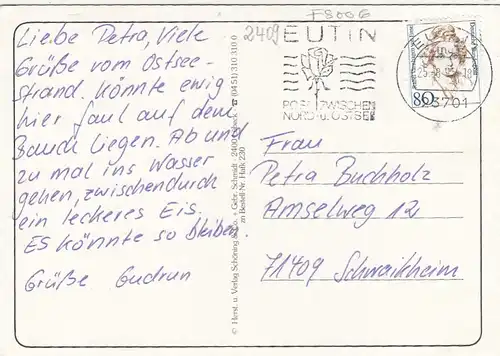 Liebe Petra, Viele
Grüße vom Ostsee-
strand. Könnte ewig
hier faul auf dem
Bauch liegen. Ab und
zu mal ins Wasser
gehen, zwischendurch
ein leckeres Eis.
ES könnte so bleiben.
Grüße Gudrun
© Herst. u. Verlag Schöning & Co. + Gebr. Schmidt · 2400 Lübeck · ☎ (04 51) 310 310 0
zu Bestell-Nr. Hulk 230
FS006
2409
EUTIN
ROSE ZWISCHEN
NORD- u. OSTSEE
EUTIN
23701
80
Frau
Petra Buchholz
Amselweg 12
71409 Schwaikheim